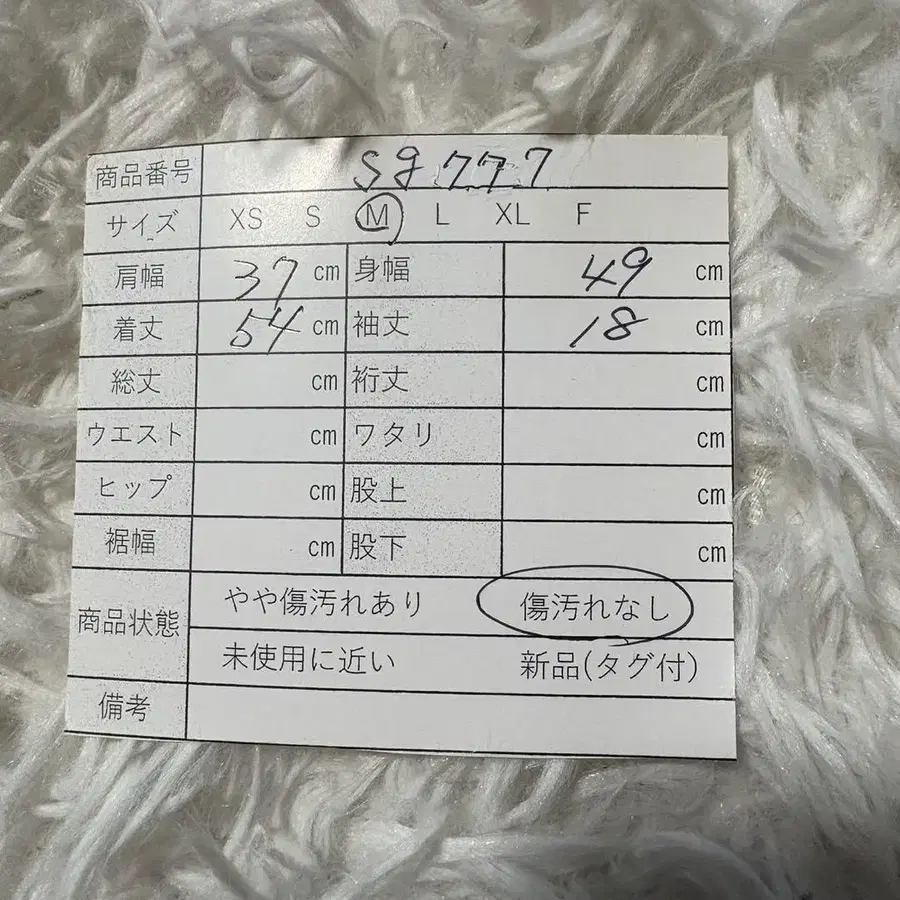 商品番号 sg777
サイズ XS S M L XL F
肩幅 37 cm 身幅 49 cm
着丈 54 cm 袖丈 18 cm
総丈 cm 裄丈 cm
ウエスト cm ワタリ cm
ヒップ cm 股上 cm
裾幅 cm 股下 cm
商品状態 やや傷汚れあり 傷汚れなし
未使用に近い 新品(タグ付)
備考